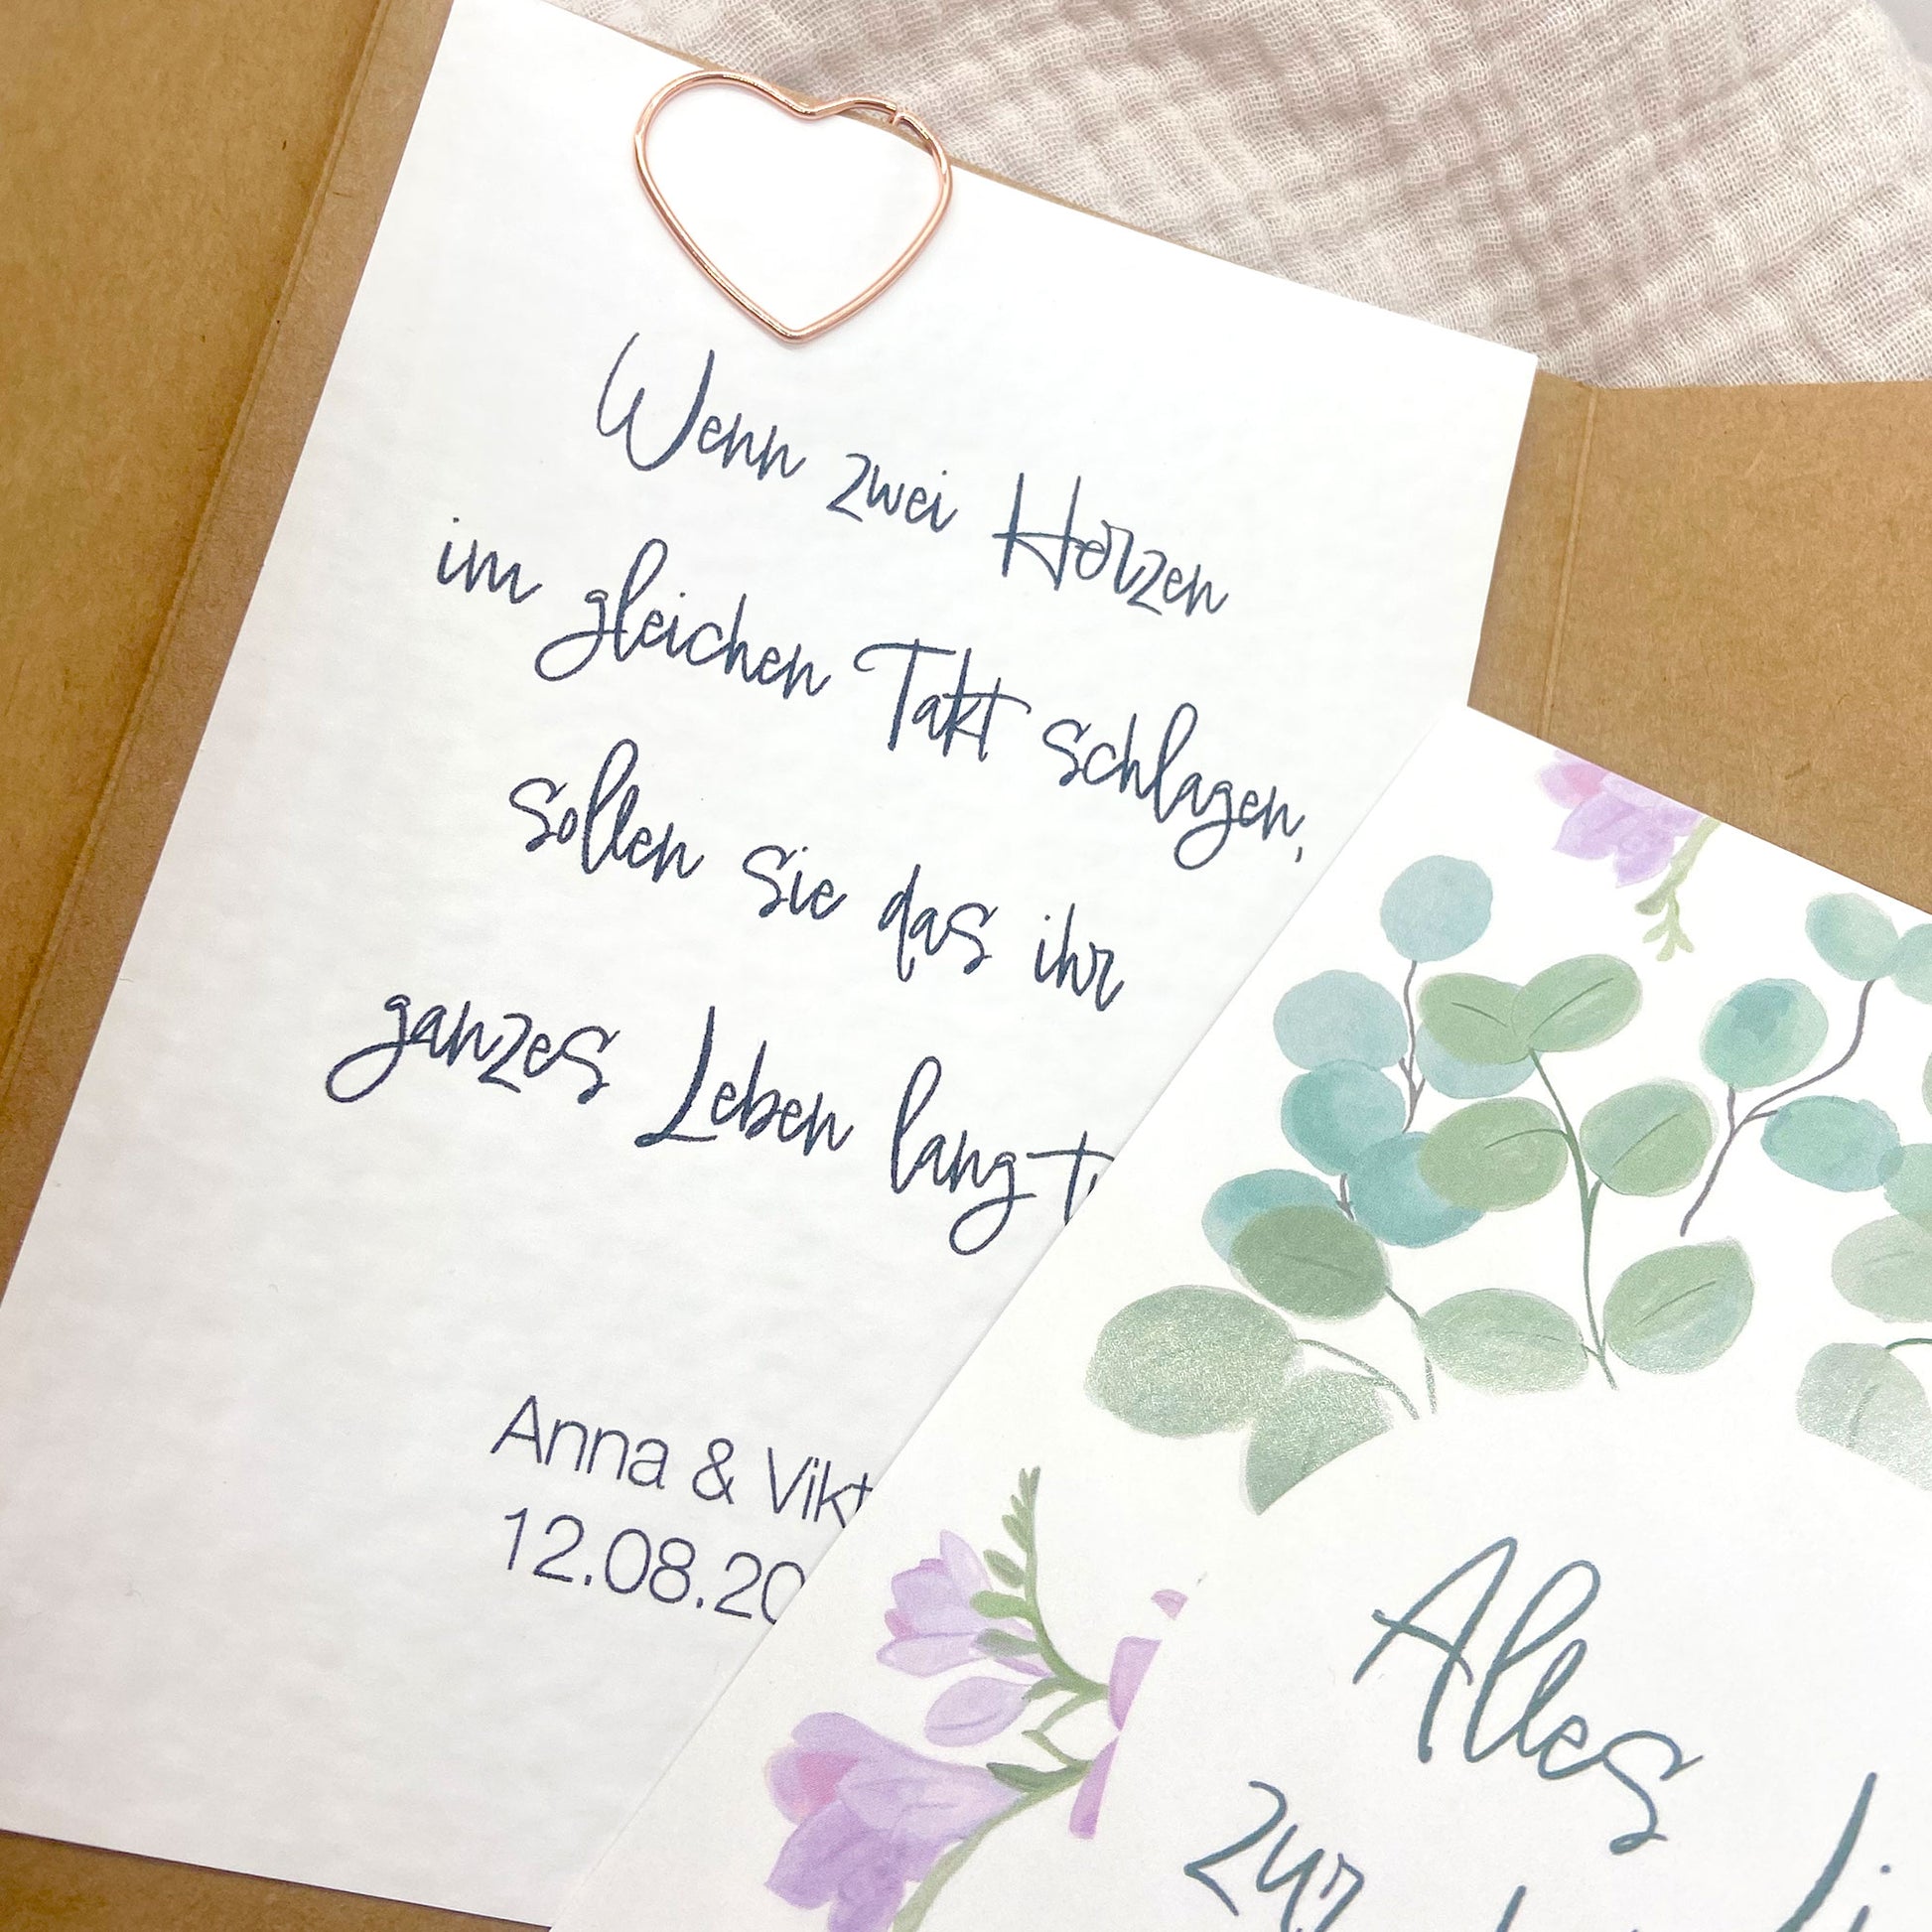 Wenn zwei Herzen
im gleichen Takt schlagen,
sollen sie das ihr
ganzes Leben lang
Anna &
12.08.20
Alles
zur